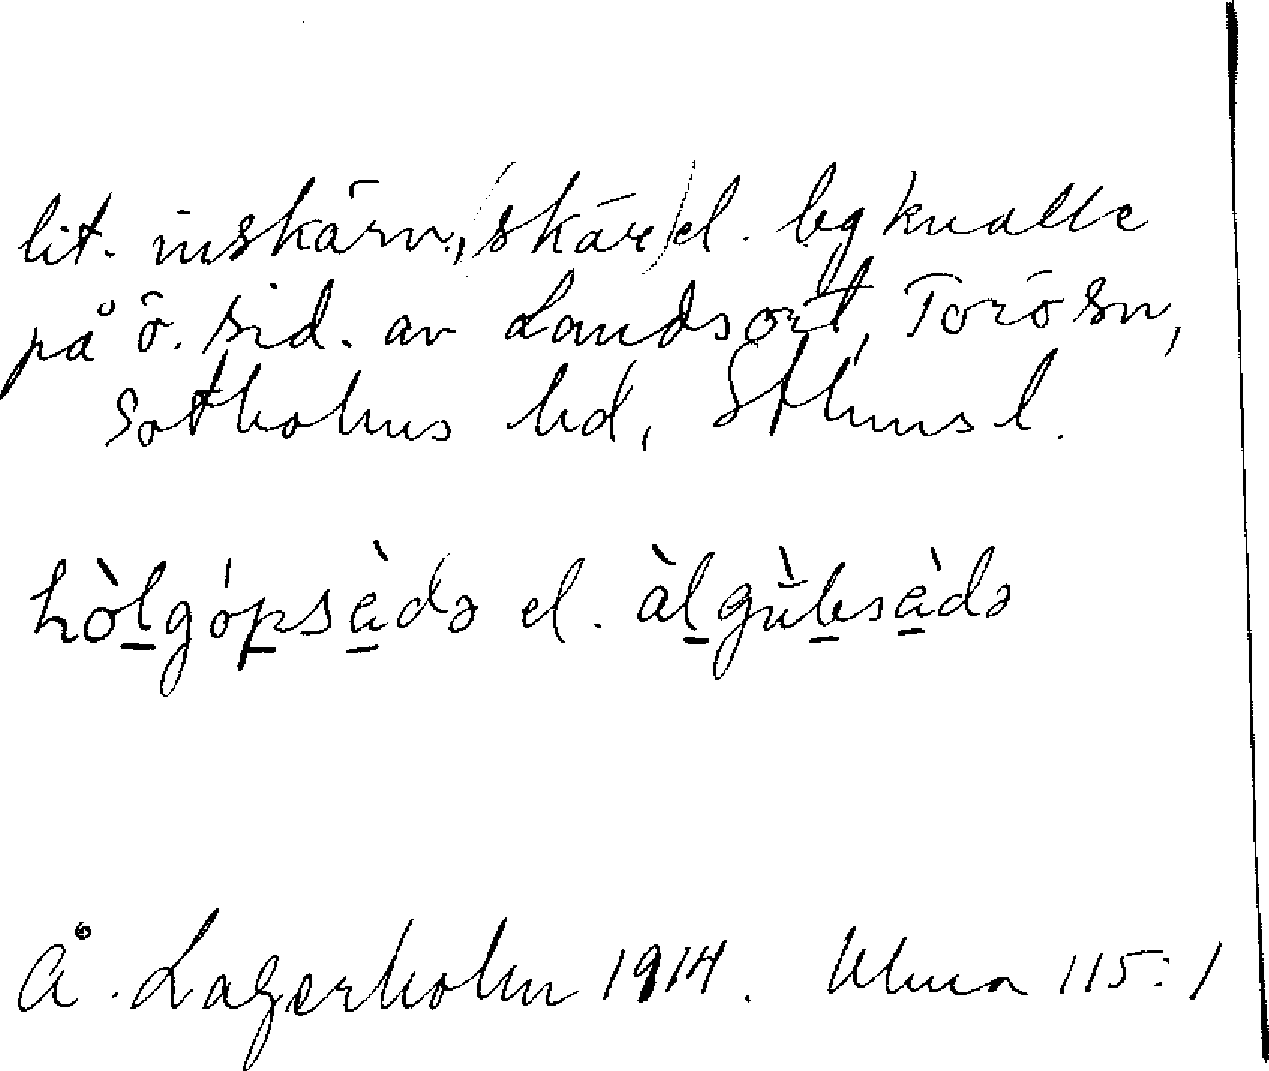 lit. inskärn., (skäre) el. bg knalle
på ö. sid. av Landsort, Torö sn,
Sotholms hd, Sthms l.
hòlgópsèdə el. àlgùbsèdə
Å. Lagerholm 1914. Uluma 115:1